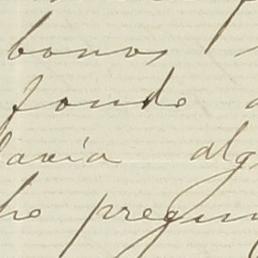 bonos
fondo
davía alg
ho pregun